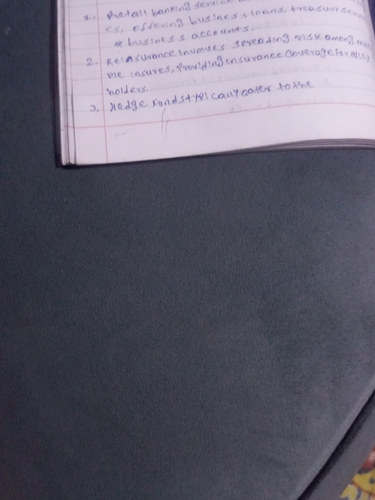 1. Retail banking service
es, offering business loans, treasury
& business accounts.
2. Reinsurance involves spreading risk among
ple insures, providing insurance coverage for
holders
3. Hedge fonds typically cater to the